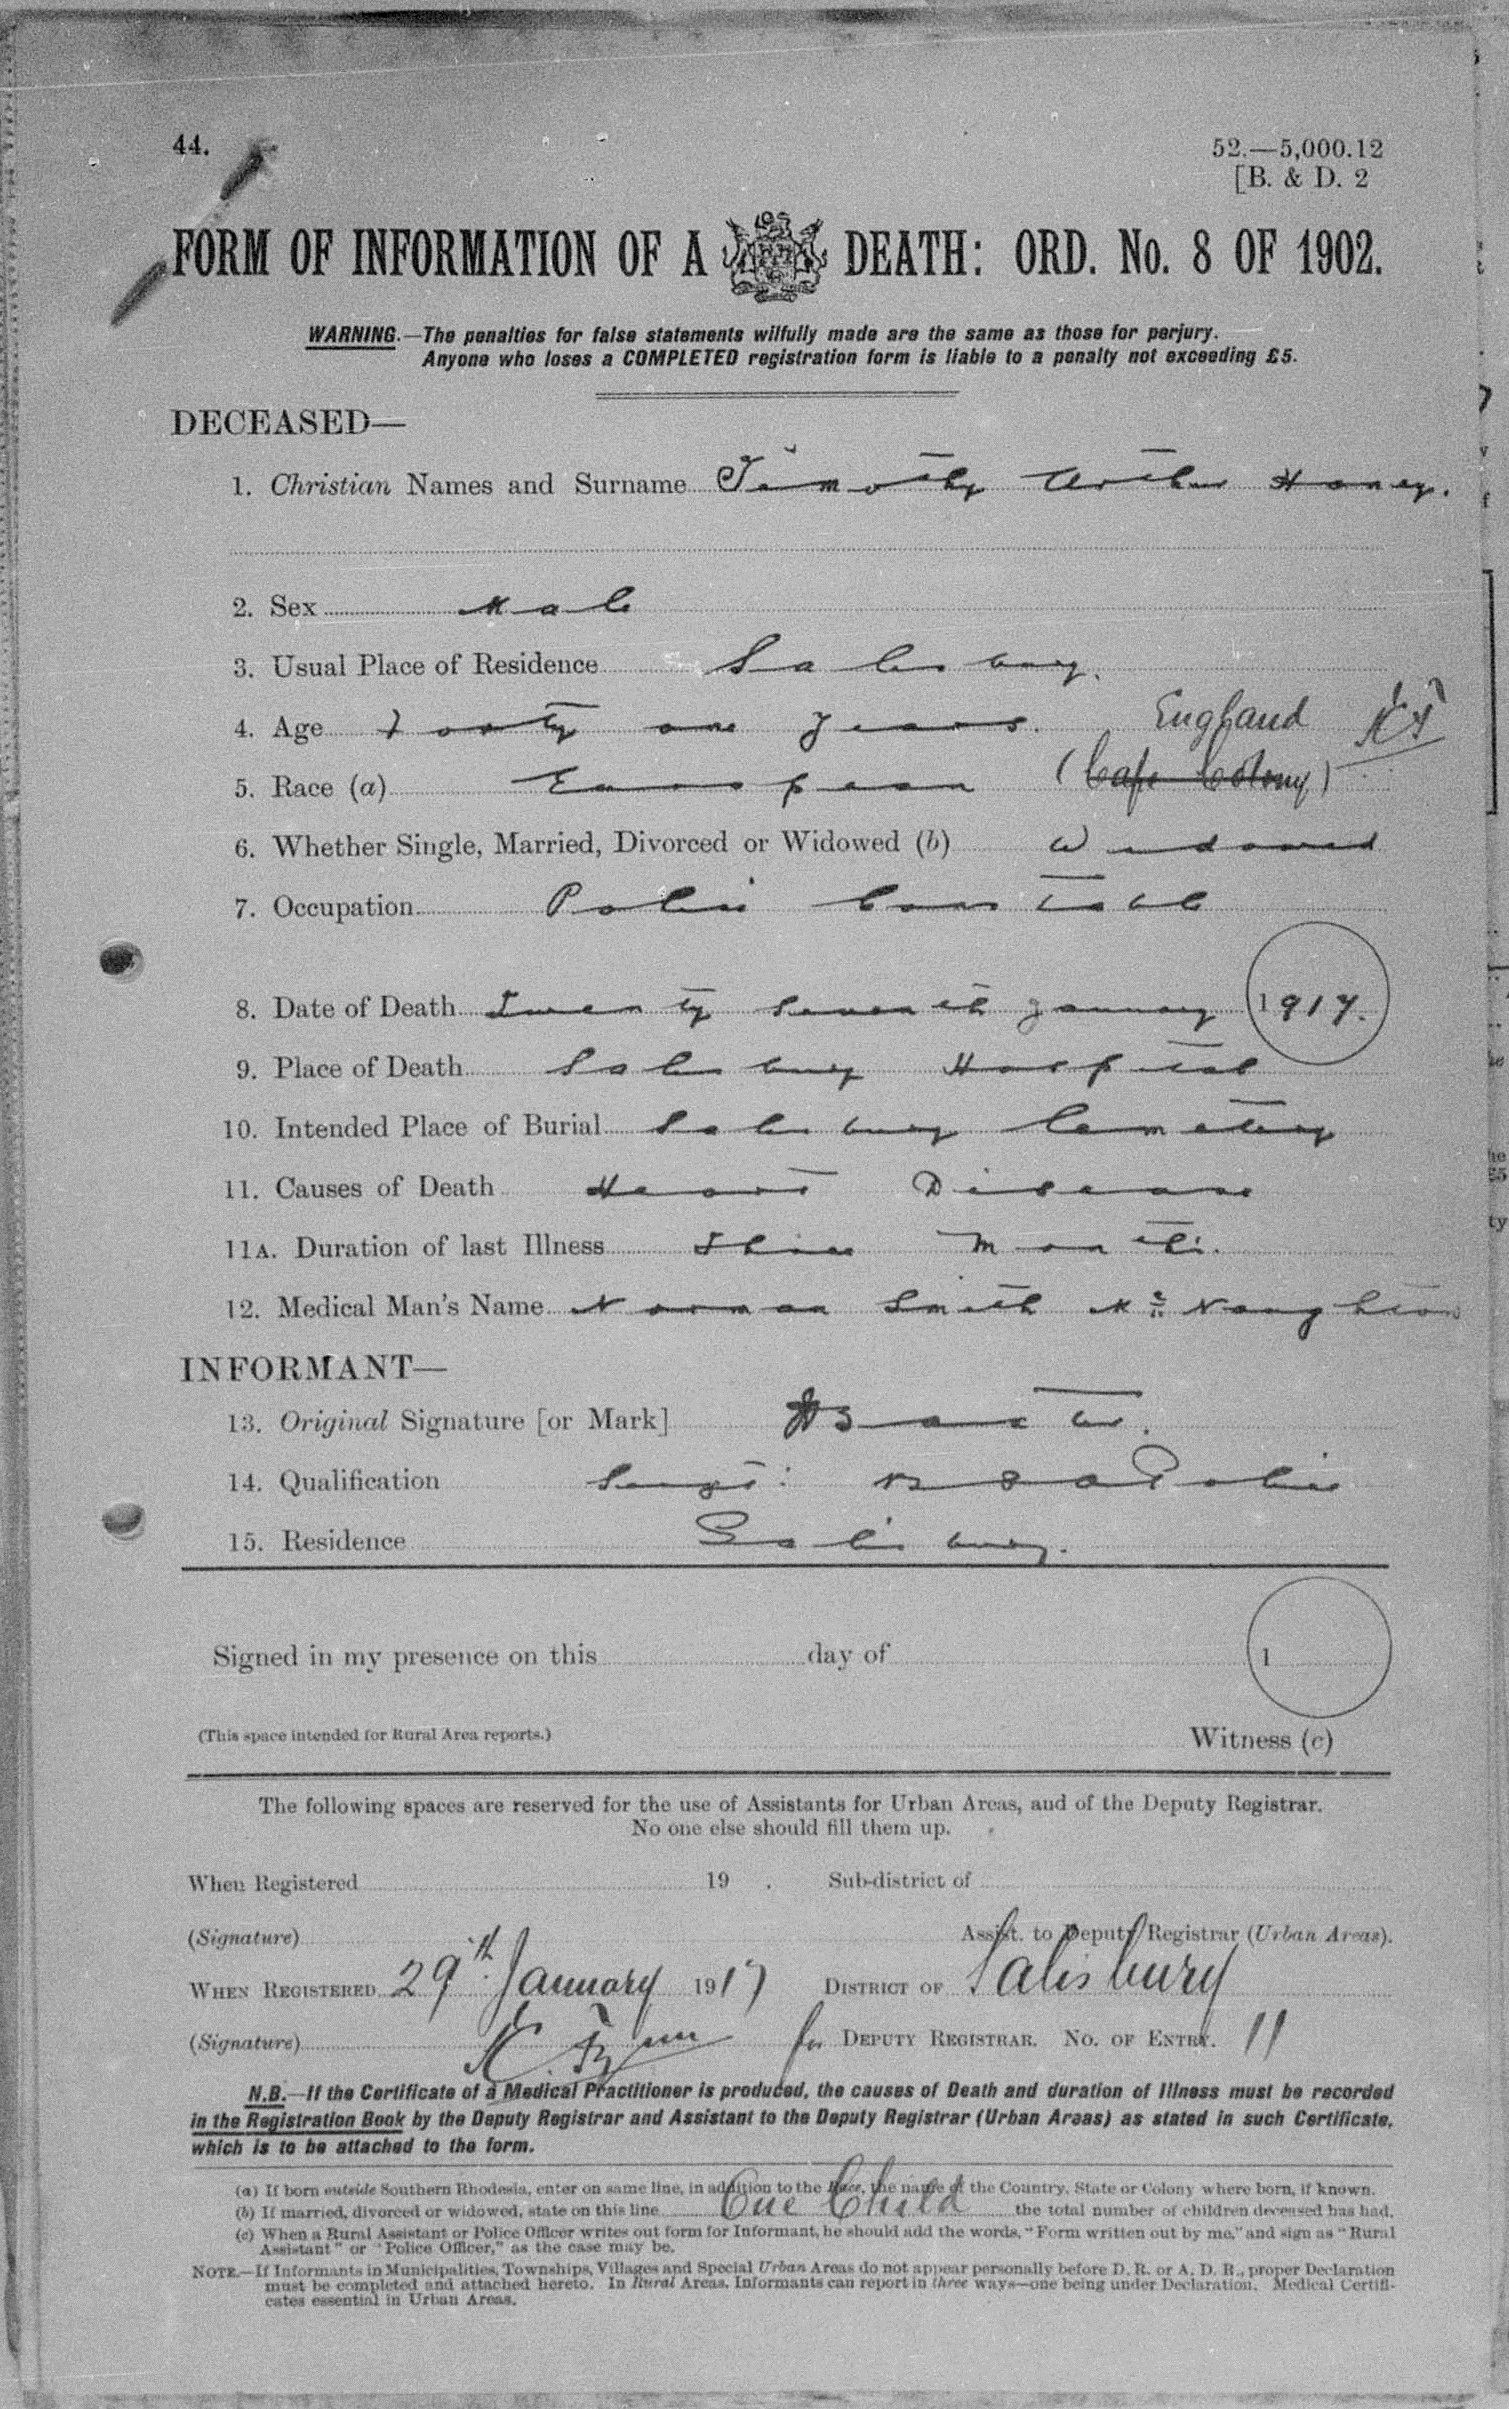 44.
52.—5,000.12
[B. & D. 2
FORM OF INFORMATION OF A DEATH: ORD. No. 8 OF 1902.
WARNING.—The penalties for false statements wilfully made are the same as those for perjury.
Anyone who loses a COMPLETED registration form is liable to a penalty not exceeding £5.
DECEASED—
1. Christian Names and Surname Timothy Arthur Honey.
2. Sex Male
3. Usual Place of Residence Salisbury.
4. Age Forty one years. England
5. Race (a) European (Cape Colony)
6. Whether Single, Married, Divorced or Widowed (b) Widowed
7. Occupation Police Constable
8. Date of Death Twenty seventh January 1917.
9. Place of Death Salisbury Hospital
10. Intended Place of Burial Salisbury Cemetery
11. Causes of Death Heart Disease
11A. Duration of last Illness Three Months.
12. Medical Man's Name Norman Smith McNaughton
INFORMANT—
13. Original Signature [or Mark]
14. Qualification Sergt: B S A Police
15. Residence Salisbury.
Signed in my presence on this day of 1
(This space intended for Rural Area reports.) Witness (c)
The following spaces are reserved for the use of Assistants for Urban Areas, and of the Deputy Registrar.
No one else should fill them up.
When Registered 19 . Sub-district of
(Signature) Assist. to Deputy Registrar (Urban Areas).
WHEN REGISTERED 29th January 1917 DISTRICT OF Salisbury
(Signature) for DEPUTY REGISTRAR. NO. OF ENTRY. 11
N.B.—If the Certificate of a Medical Practitioner is produced, the causes of Death and duration of Illness must be recorded
in the Registration Book by the Deputy Registrar and Assistant to the Deputy Registrar (Urban Areas) as stated in such Certificate,
which is to be attached to the form.
(a) If born outside Southern Rhodesia, enter on same line, in addition to the Race, the name of the Country, State or Colony where born, if known.
(b) If married, divorced or widowed, state on this line One Child the total number of children deceased has had.
(c) When a Rural Assistant or Police Officer writes out form for Informant, he should add the words, "Form written out by me," and sign as "Rural
Assistant" or "Police Officer," as the case may be.
NOTE.—If Informants in Municipalities, Townships, Villages and Special Urban Areas do not appear personally before D. R. or A. D. R., proper Declaration
must be completed and attached hereto. In Rural Areas, Informants can report in three ways—one being under Declaration. Medical Certifi-
cates essential in Urban Areas.